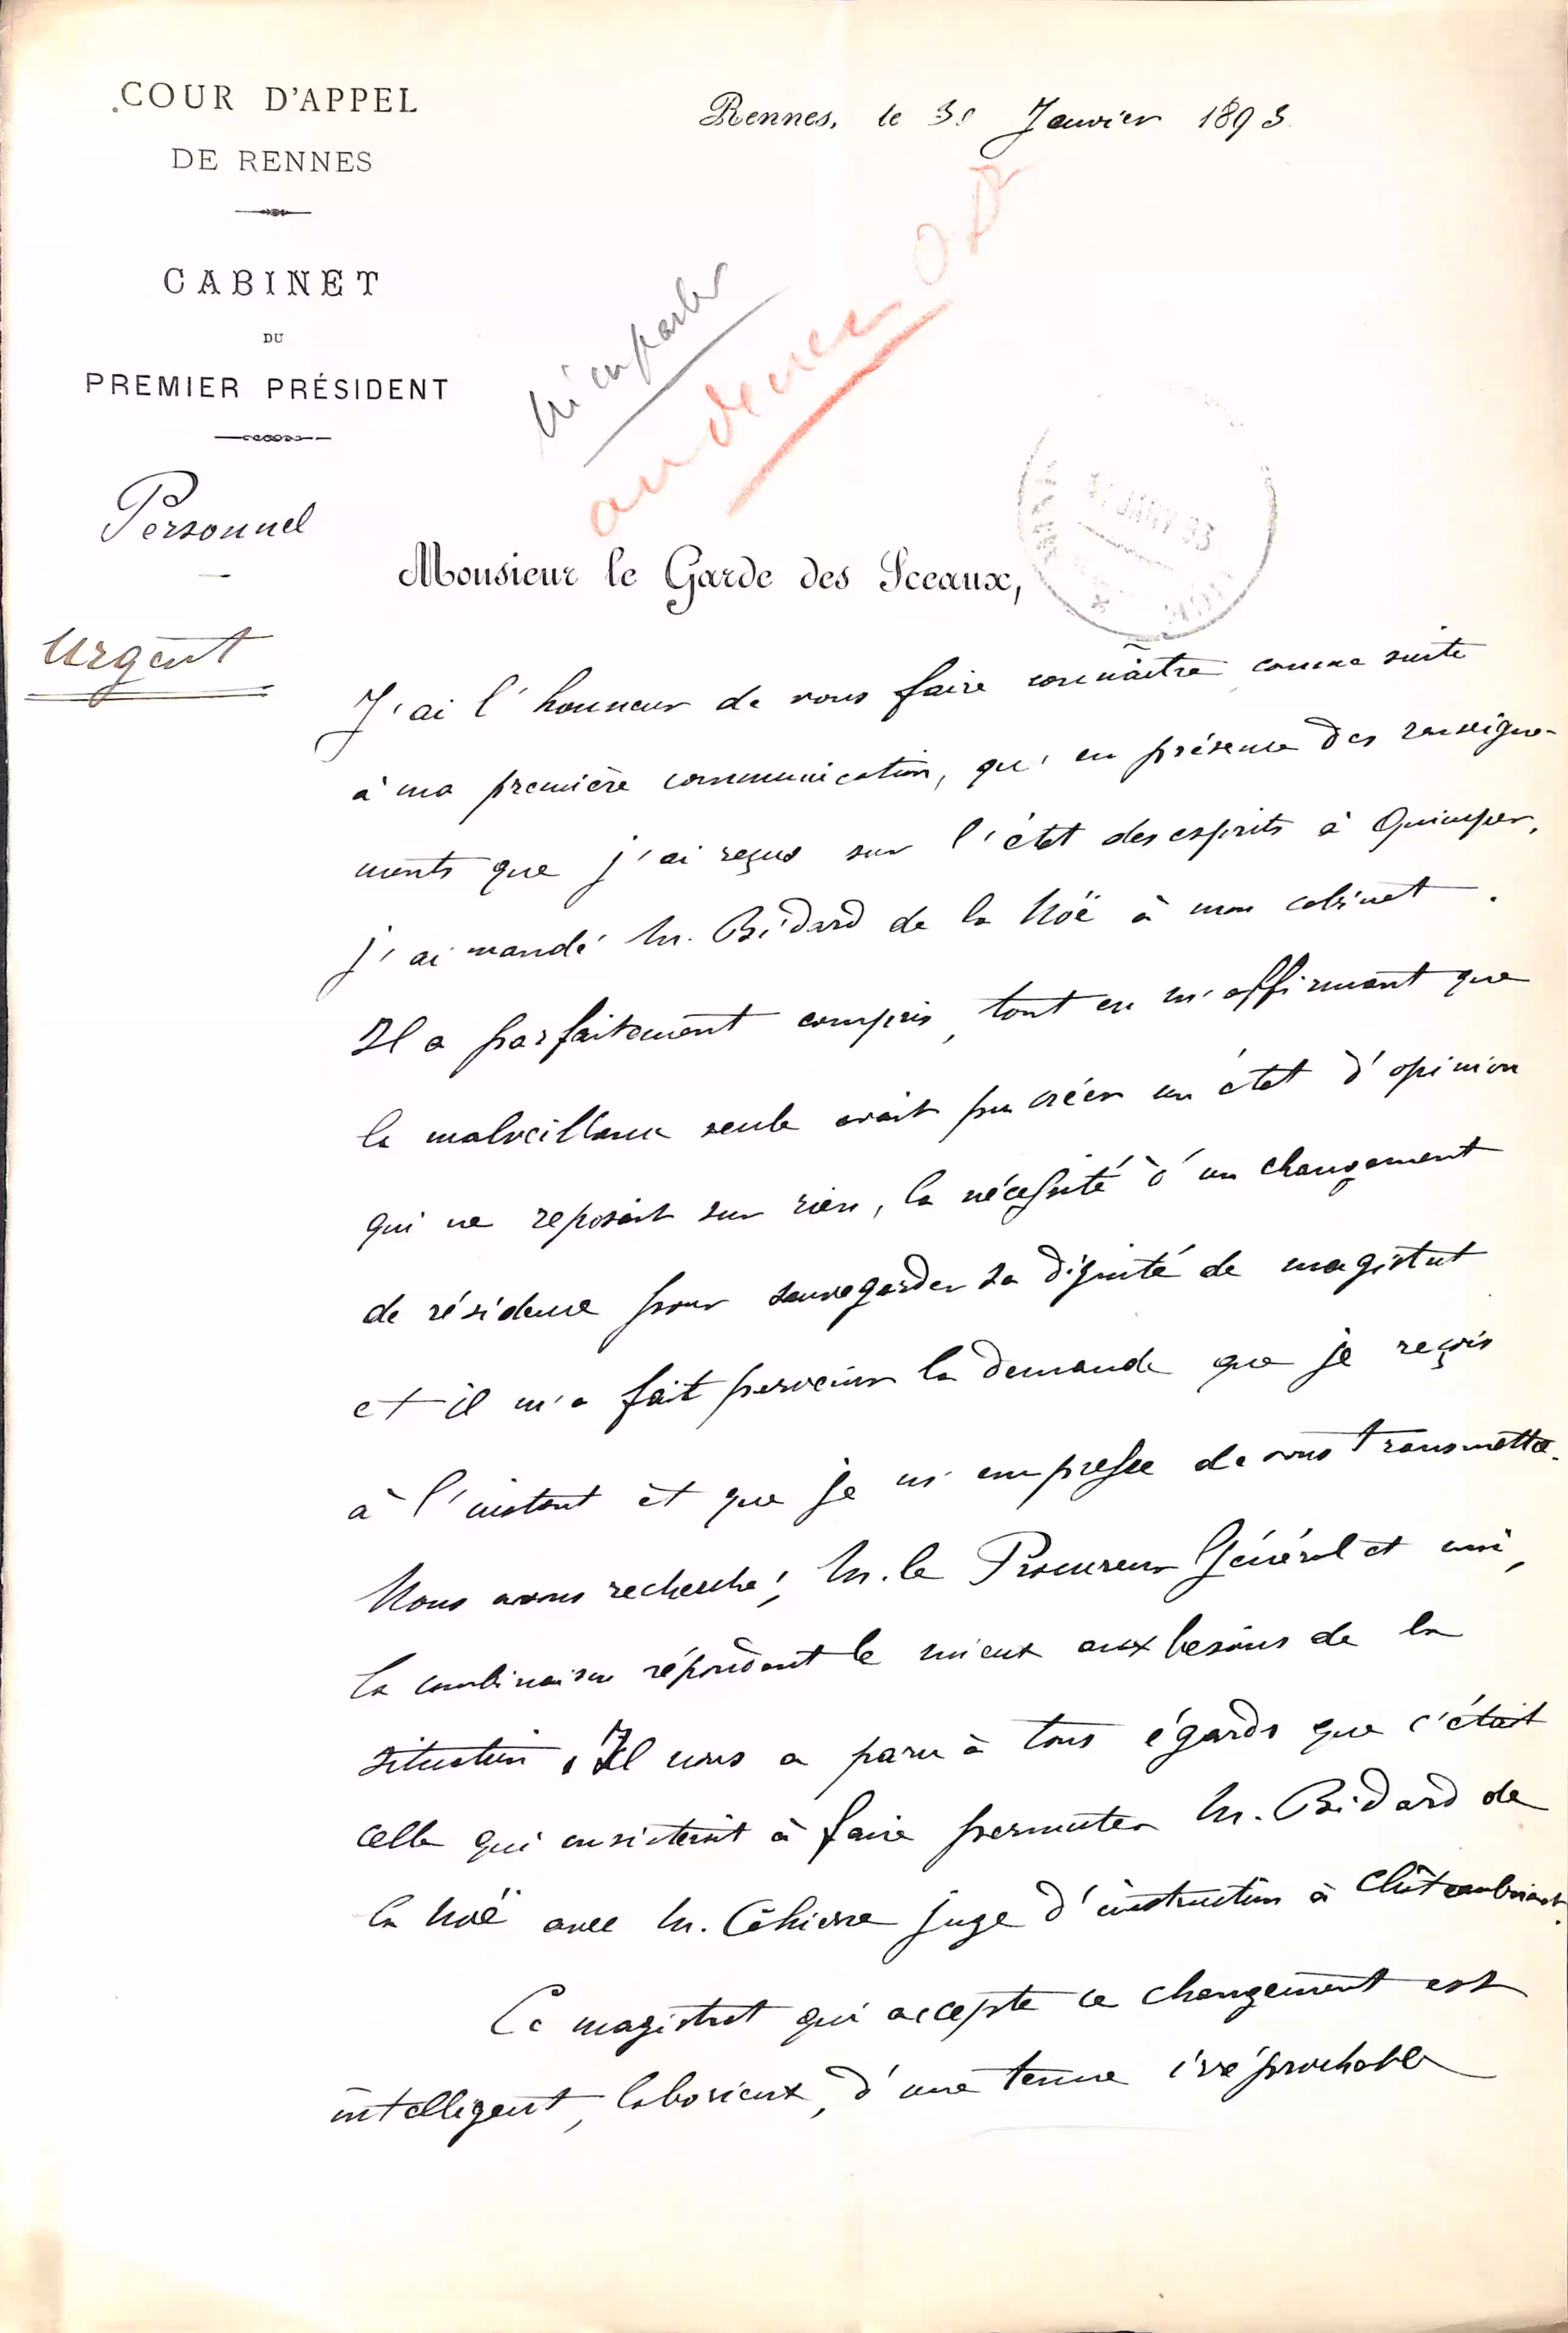 COUR D'APPEL
DE RENNES
CABINET
DU
PREMIER PRÉSIDENT
Personnel
Urgent
Rennes, le 31 Janvier 1893
m'en parler
Monsieur le Garde des Sceaux,
J'ai l'honneur de vous faire connaître comme suite
à ma première communication, qu'en présence des renseigne-
ments que j'ai reçus sur l'état des esprits à Quimper,
j'ai mandé M. Bidard de la Noë à mon cabinet.
Il a parfaitement compris, tout en m'affirmant que
la malveillance seule avait pu créer un état d'opinion
qui ne reposait sur rien, la nécessité d'un changement
de résidence pour sauvegarder sa dignité de magistrat
et il m'a fait parvenir la demande que je reçois
à l'instant et que je m'empresse de vous transmettre.
Nous avons recherché, M. le Procureur Général et moi,
la combinaison répondant le mieux aux besoins de la
situation. Il nous a paru à tous égards que c'était
celle qui consisterait à faire permuter M. Bidard de
la Noë avec M. juge d'instruction à Châteaubriant.
Ce magistrat qui accepte ce changement est
intelligent, laborieux, d'une tenue irréprochable